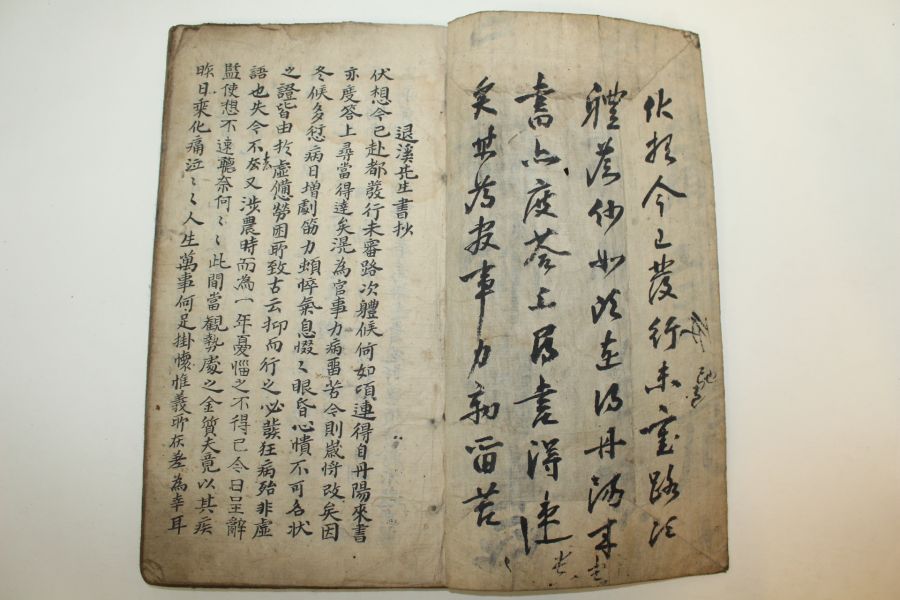 伏想今已發行未審路次
軆候何如頃連得丹陽來
書亦度答上尋書得達
矣某為官事力病留苦
退溪先生書抄
伏想今已赴都發行未審路次軆候何如頃連得自丹陽來書
亦度答上尋當得達矣滉為官事力病留苦今則歲将改矣因
冬候多愆病日增劇筋力頓悴氣息惙〻眼昏心憒不可名状
之證皆由扵虛憊勞困所致古云抑而行之必發狂病殆非虛
語也失今不去又涉農時而為一年憂惱之不得已今日呈辭
監使想不速聽奈何〻〻此間當觀勢處之金質夫竟以其疾
昨日乘化痛泣〻〻人生萬事何足掛懷惟義所在差為幸耳